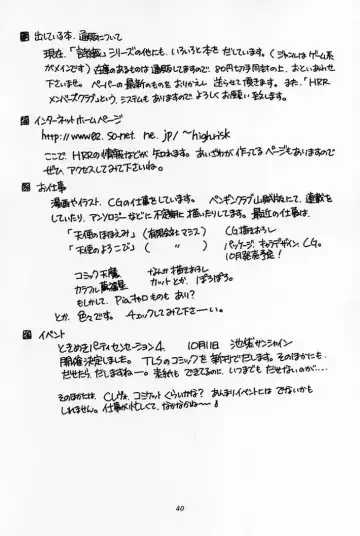 ■ 出している本、通販について
現在、「詰合」シリーズの他にも、いろいろと本をだしています。(ジャンルはゲーム系
がメインです) 在庫のあるものは通販してますので、80円切手同封の上、おといあわせ
下さいませ。ペーパーの最新のものをおりかえし送らせて頂きます。また、「HRR
メンバーズクラブ」という、システムもありますのでよろしくお願い致します。
■ インターネットホームページ
http://www02.so-net.ne.jp/~highrisk
ここで、HRRの情報などが知れます。あいざわが作ってるページもありますので
ぜひ、アクセスしてみて下さいね。
■ お仕事
漫画やイラスト、CGの仕事をしています。ペンギンクラブ山賊版にて、連載を
していたり、アンソロジーなどに不定期に描いたりしてます。最近の仕事は、
「天使のほほえみ」(有限会社マシス) CG描きおろし
「天使のよろこび」( 〃 ) パッケージ、キャラデザイン、CG。
10月発売予定!
コミック天魔 なんか描きおろし
カラフル萬福星 カットとか、ぽろぽろ。
もしかして、Piaキャロものもあり?
とか、色々です。チェックしてみて下さーい。
■ イベント
ときめきパーティセンセーション4 10月11日 池袋サンシャイン
開催決定しました。TLSのコミックを新刊でだします。そのほかにも、
だせたら、だしますねー。表紙もできてるのに、いつまでもだせないのが……
そのほかには、CレヴォCミケットくらいかな? あんまりイベントにはでないかも
しれません。仕事が忙しくて、なかなかね〜
40